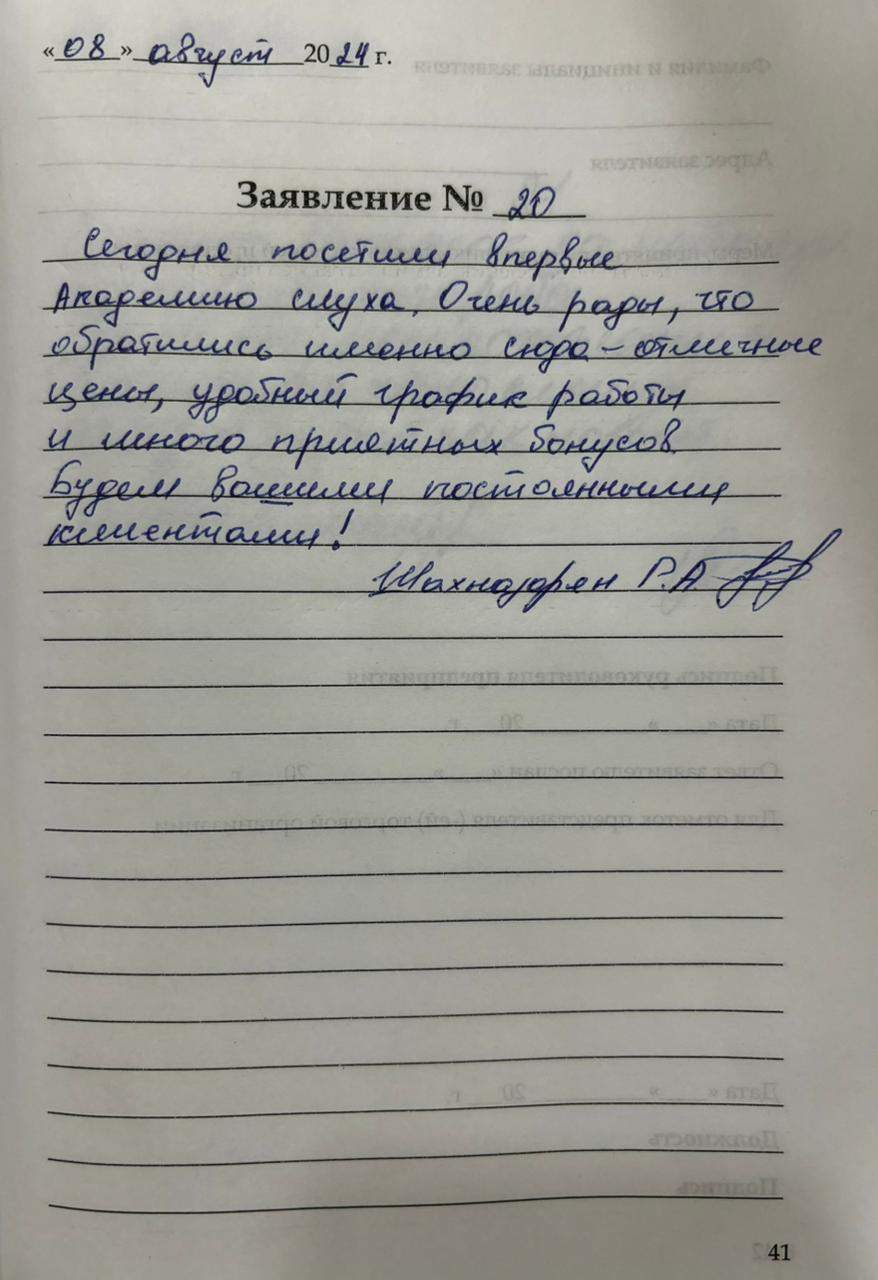 «08» август 2024 г.
Заявление № 20
Сегодня посетили впервые
Академию слуха. Очень рады, что
обратились именно сюда – отличные
цены, удобный график работы
и много приятных бонусов.
Будем вашими постоянными
клиентами!
Шахназарян Р.А.
41